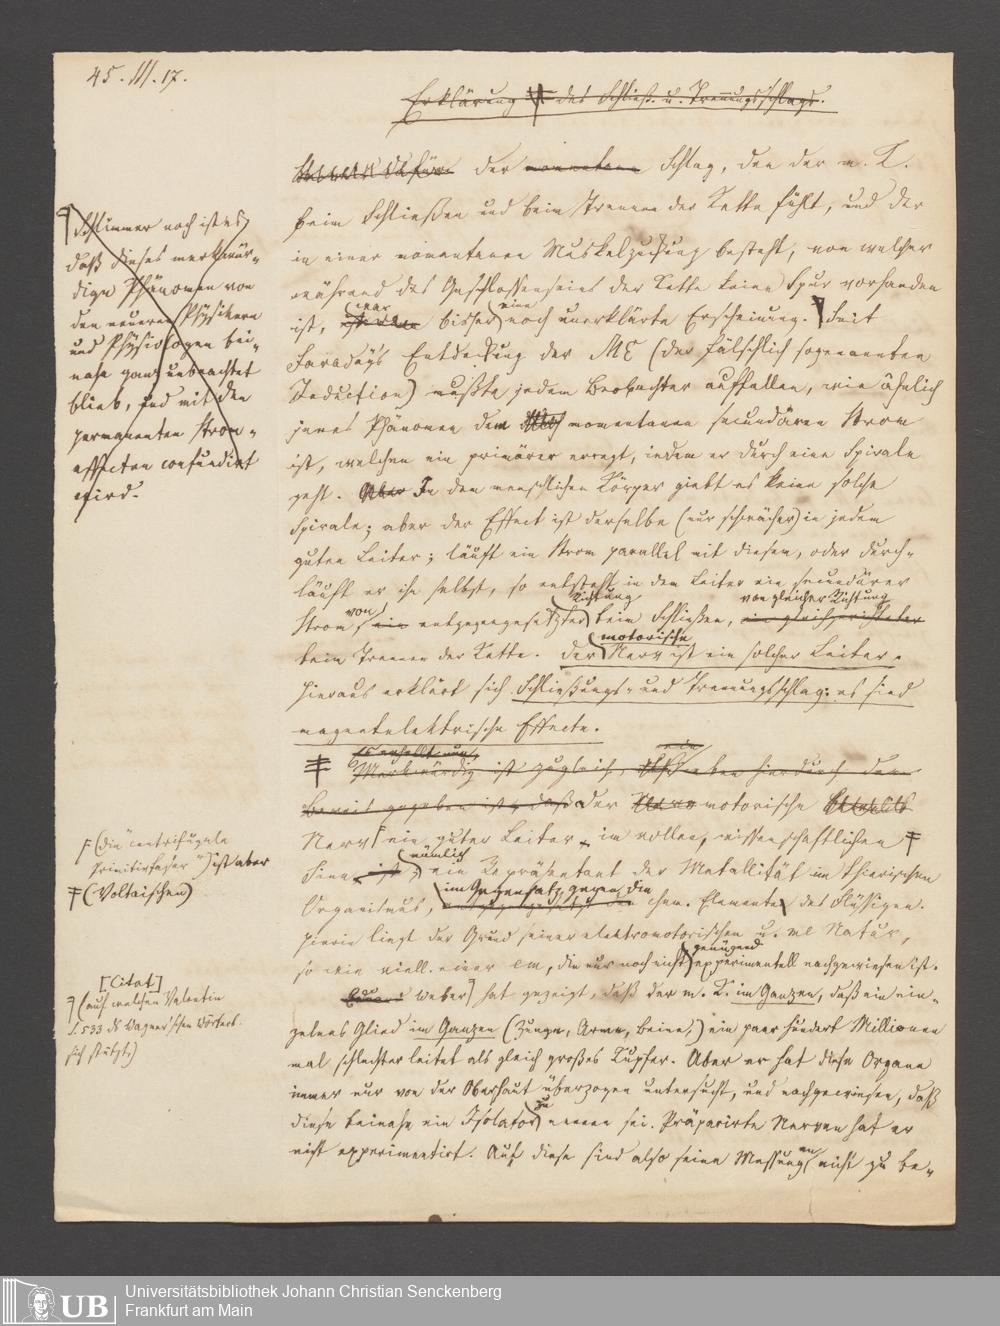 45. III. 17.
Erklärung des Schließ- u. Trennungsschlags.
der momentane Schlag, den der m. K.
beim Schließen und beim Trennen der Kette fühlt, und der
in einer momentanen Muskelzuckung besteht, von welcher
während des Geschlossenseins der Kette keine Spur vorhanden
ist, war bisher eine noch unerklärte Erscheinung. Seit
Faraday's Entdeckung der ME (der fälschlich sogenannten
Induction) mußte jedem Beobachter auffallen, wie ähnlich
jenes Phänomen dem momentanen secundären Strom
ist, welchen ein primärer erregt, indem er durch eine Spirale
geht. Aber In dem menschlichen Körper giebt es keine solche
Spirale; aber der Effect ist derselbe (nur schwächer) in jedem
guten Leiter; läuft ein Strom parallel mit diesem, oder durch-
läuft er ihn selbst, so entsteht in dem Leiter ein secundärer
Strom von ein entgegengesetzter Richtung beim Schließen, von gleicher Richtung ein gleichgerichteter
beim Trennen der Kette. Der motorische Nerv ist ein solcher Leiter.
Hieraus erklärt sich Schließungs- und Trennungsschlag: es sind
magnetelektrische Effecte.
Es erhellt nun, Merkwürdig ist zugleich, eben hierdurch dem
Beweis gegeben ist, daß der Nerv motorische
Nerv ein guter Leiter, im vollen, wissenschaftlichen
Sinn ist, nämlich ein Repräsentant der Metallität im thierischen
Organismus, im Gegensatz gegen den chem. Elemente des Flüssigen.
Hierin liegt der Grund seiner elektromotorischen u. me Natur,
so wie viell. einer em, die nur noch nicht genügend experimentell nachgewiesen ist.
Weber hat gezeigt, daß der m. K. im Ganzen, daß ein ein-
zelnes Glied im Ganzen (Zunge, Arme, Beine,) ein paar hundert Millionen
mal schlechter leitet als gleich großes Kupfer. Aber er hat diese Organe
immer nur von der Oberhaut überzogen untersucht, und nachgewiesen, daß
diese beinahe ein Isolator zu nennen sei. Präparirte Nerven hat er
nicht experimentirt. Auf diese sind also seine Messungen nicht zu be-
Schlimmer noch ist es,
daß dieses merkwür-
dige Phänomen von
den neueren Physikern
und Physiologen bei-
nahe ganz unbeachtet
blieb, und mit den
permanenten Strom-
effecten confundirt
wird.
(die centrifugale
Primitivfaser) ist aber
(Voltaischen)
[Citat]
(auf welchen Valentin
S. 533 ds Wagner'schen Wörterb.
sich stützt)
Universitätsbibliothek Johann Christian Senckenberg
Frankfurt am Main
UB